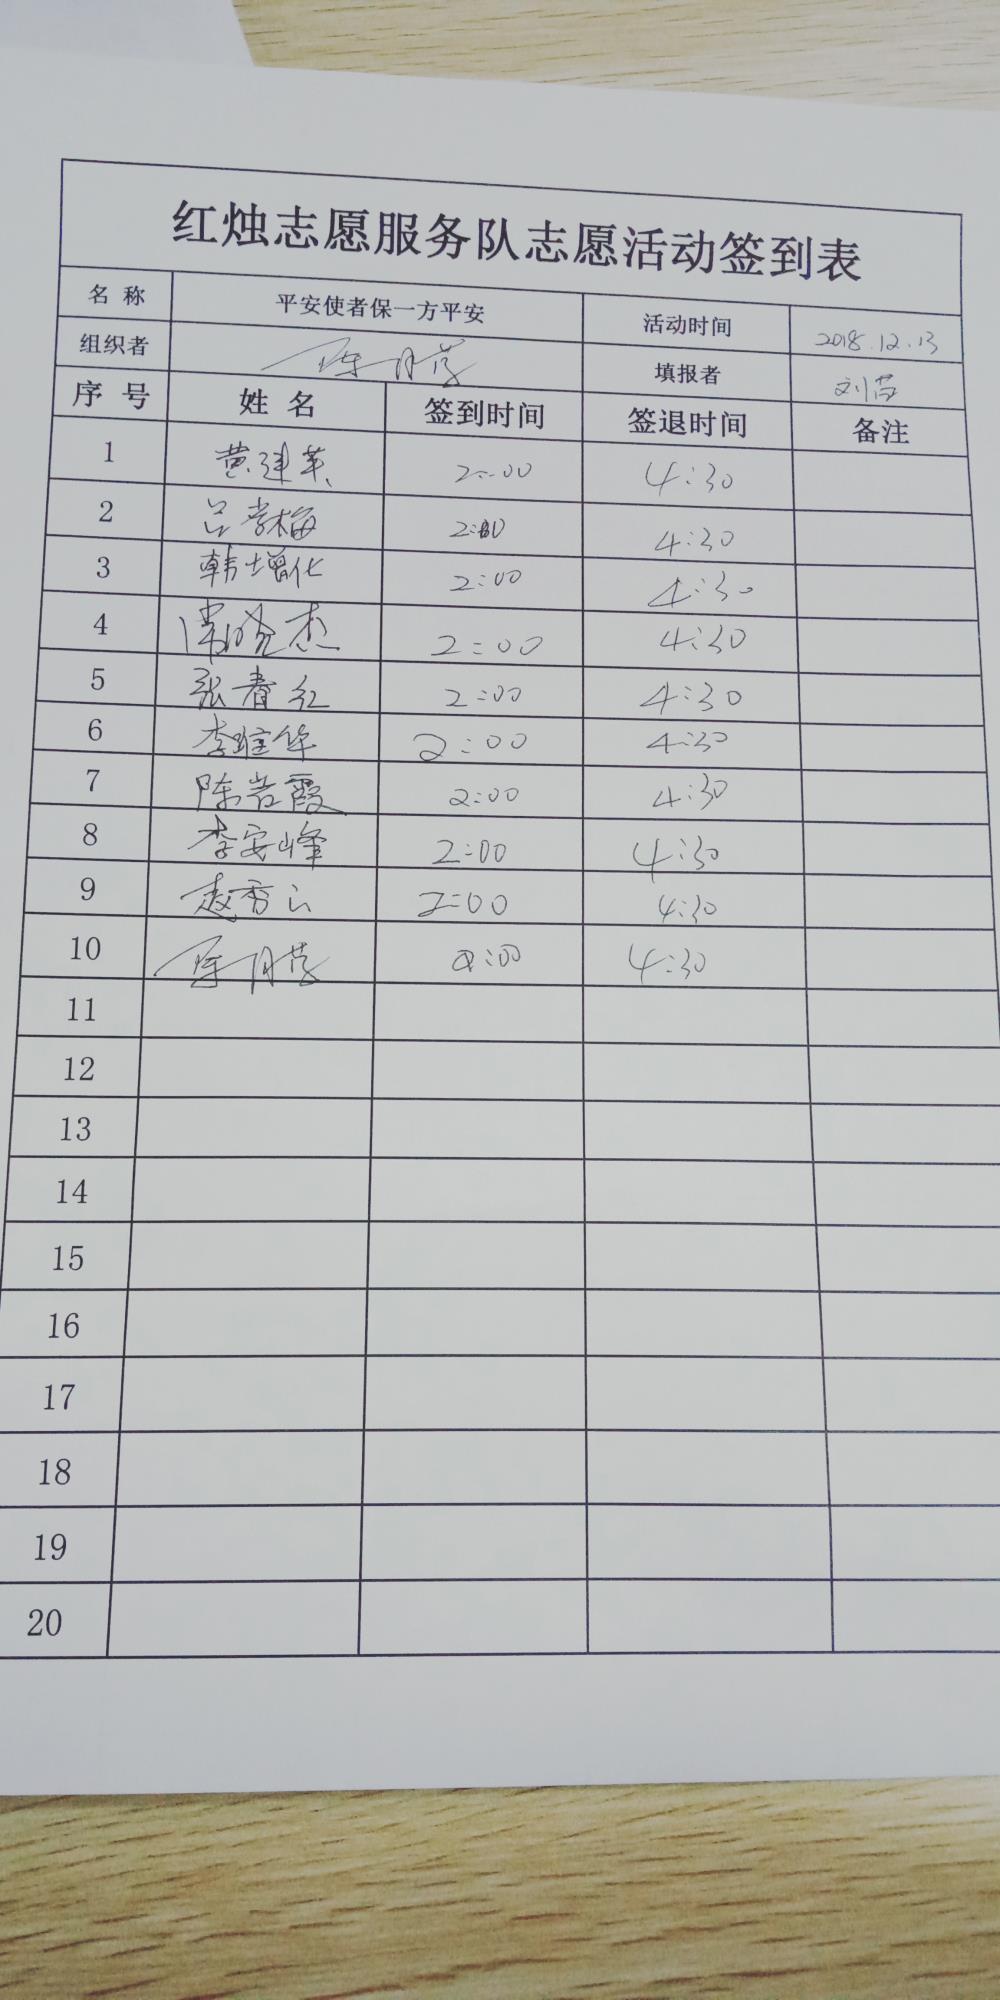 红烛志愿服务队志愿活动签到表
名 称 平安使者保一方平安 活动时间 2018.12.13
组织者 填报者
序 号 姓 名 签到时间 签退时间 备注
1 黄建英 2:00 4:30
2 吕常梅 2:00 4:30
3 韩增化 2:00 4:30
4 晓杰 2:00 4:30
5 张春红 2:00 4:30
6 李维华 2:00 4:30
7 陈岩霞 2:00 4:30
8 李安峰 2:00 4:30
9 赵秀云 2:00 4:30
10 2:00 4:30
11
12
13
14
15
16
17
18
19
20